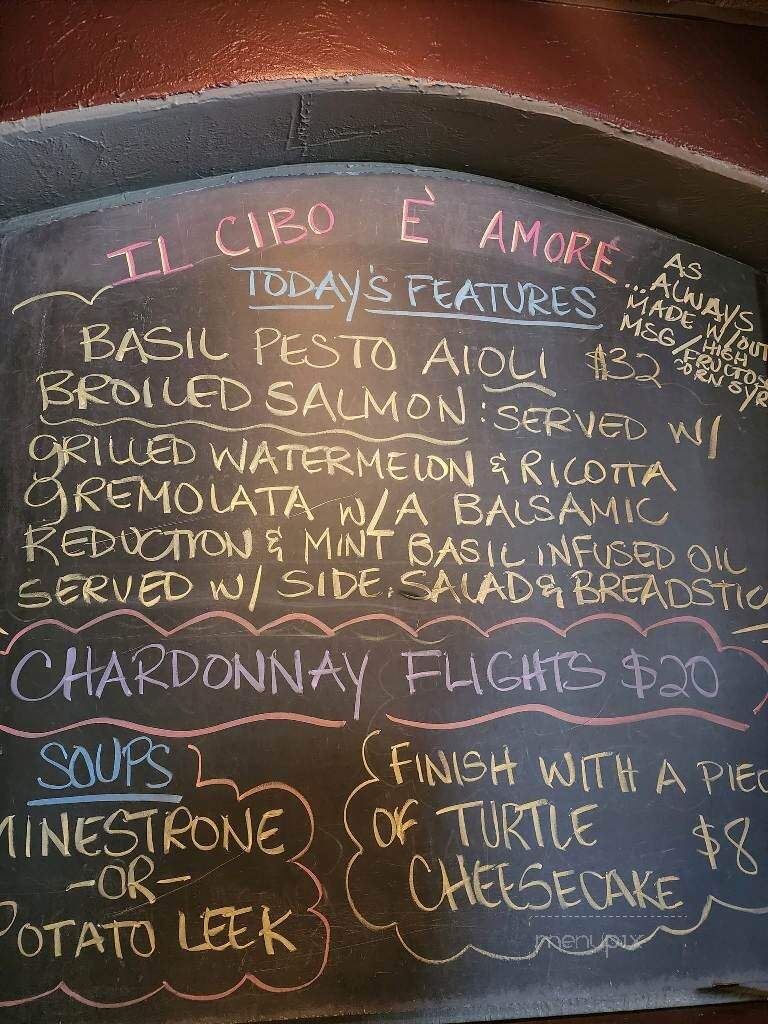 IL CIBO È AMORE
...AS
ALWAYS
MADE W/OUT
MSG/HIGH
FRUCTOS
CORN SYR
TODAY'S FEATURES
BASIL PESTO AIOLI $32
BROILED SALMON: SERVED W/
GRILLED WATERMELON & RICOTTA
GREMOLATA W/A BALSAMIC
REDUCTION & MINT BASIL INFUSED OIL
SERVED W/ SIDE SALAD & BREADSTIC
CHARDONNAY FLIGHTS $20
SOUPS
MINESTRONE
-OR-
POTATO LEEK
FINISH WITH A PIEC
OF TURTLE $8
CHEESECAKE
menupix